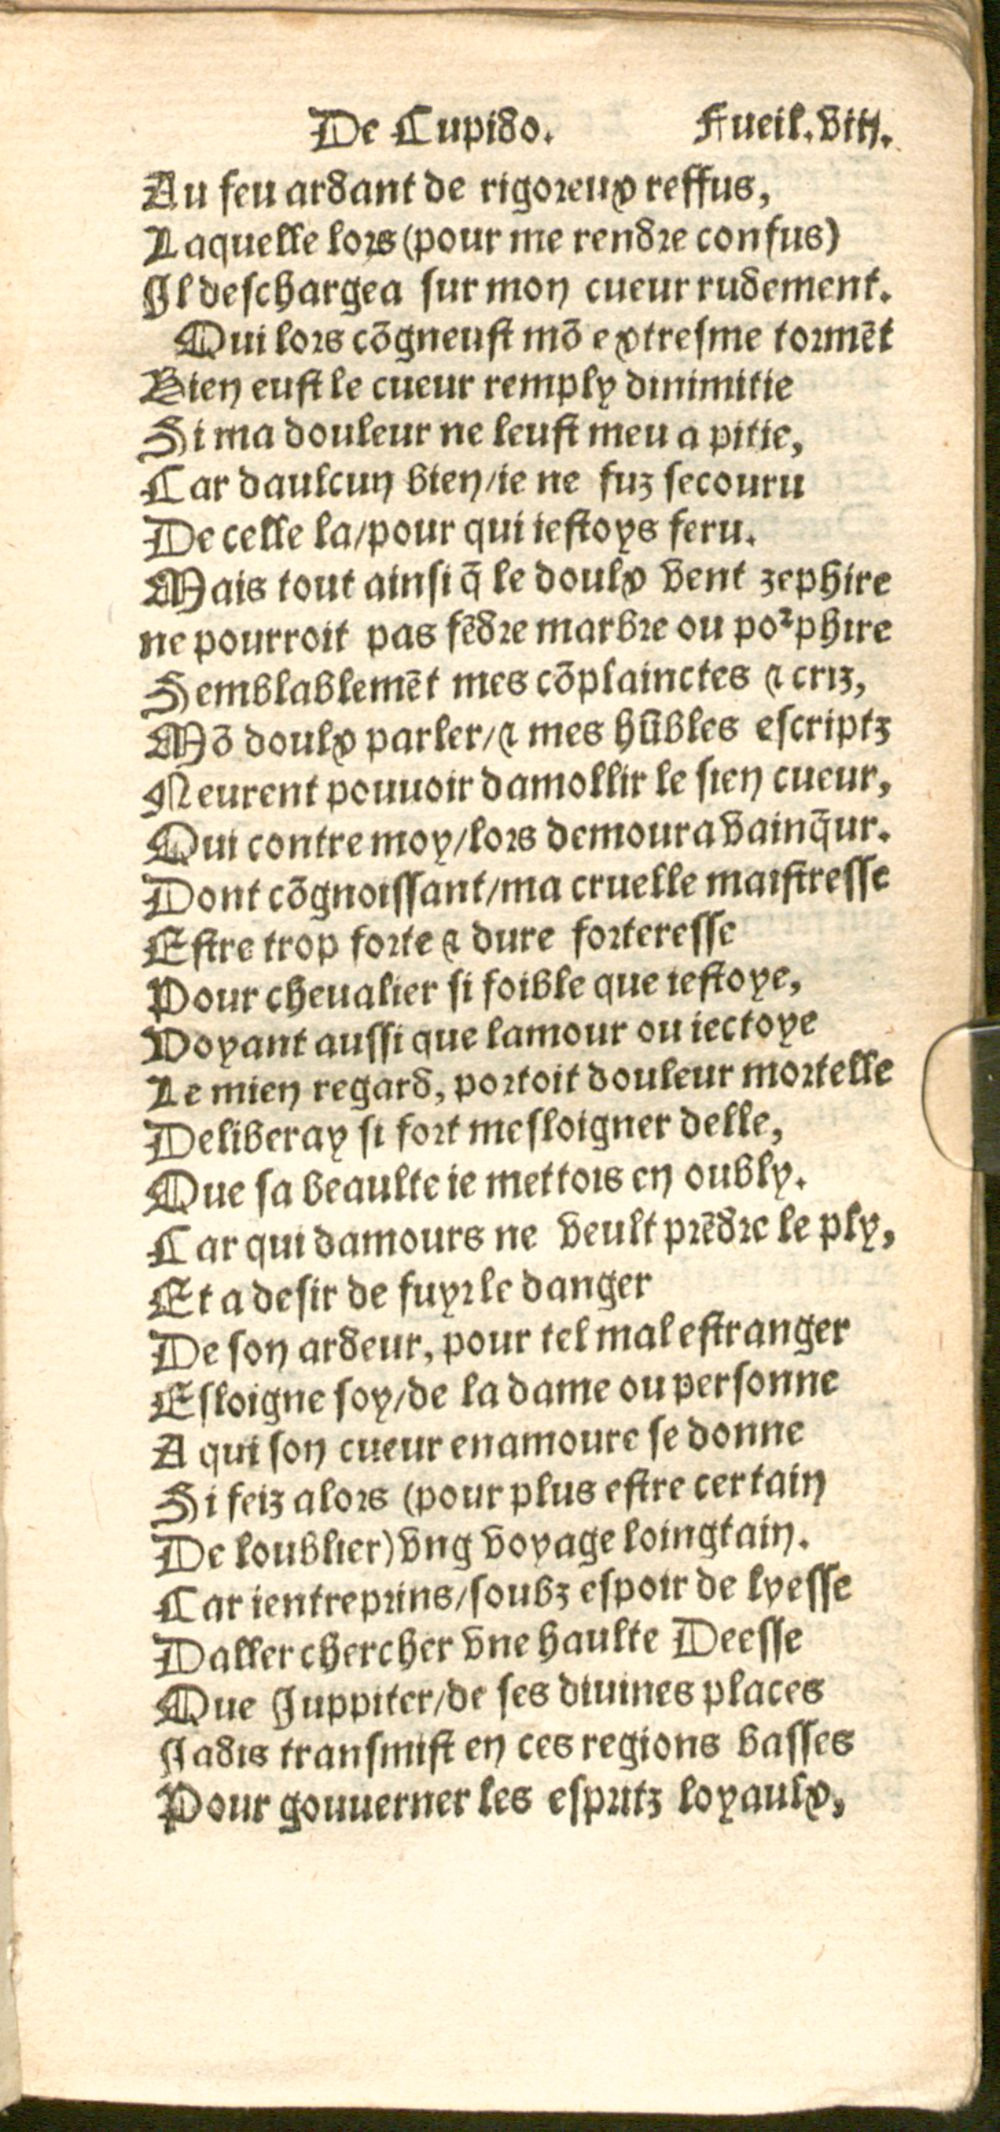 De Cupido. Fueil. viij.
Au feu ardant de rigoreux reffus,
Laquelle lors (pour me rendre confus)
Il deschargea sur mon cueur rudement.
Qui lors cõgneust mõ extresme tormẽt
Bien eust le cueur remply dinimitie
Si ma douleur ne leust meu a pitie,
Car daulcun bien/ie ne fuz secouru
De celle la/pour qui iestoys feru.
Mais tout ainsi q̃ le doulx vent zephire
ne pourroit pas fẽdre marbre ou porphire
Semblablemẽt mes cõplainctes & criz,
Mõ doulx parler/& mes hũbles escriptz
Neurent pouuoir damollir le sien cueur,
Qui contre moy/lors demoura vainq̃ur.
Dont cõgnoissant/ma cruelle maistresse
Estre trop forte & dure forteresse
Pour cheualier si foible que iestoye,
Voyant aussi que lamour ou iectoye
Le mien regard, portoit douleur mortelle
Deliberay si fort mesloigner delle,
Que sa beaulte ie mettois en oubly.
Car qui damours ne veult prẽdre le ply,
Et a desir de fuyr le danger
De son ardeur, pour tel mal estranger
Esloigne soy/de la dame ou personne
A qui son cueur enamoure se donne
Si feiz alors (pour plus estre certain
De loublier) vng voyage loingtain.
Car ientreprins/soubz espoir de lyesse
Daller chercher vne haulte Deesse
Que Juppiter/de ses diuines places
Jadis transmist en ces regions basses
Pour gouuerner les espritz loyaulx,